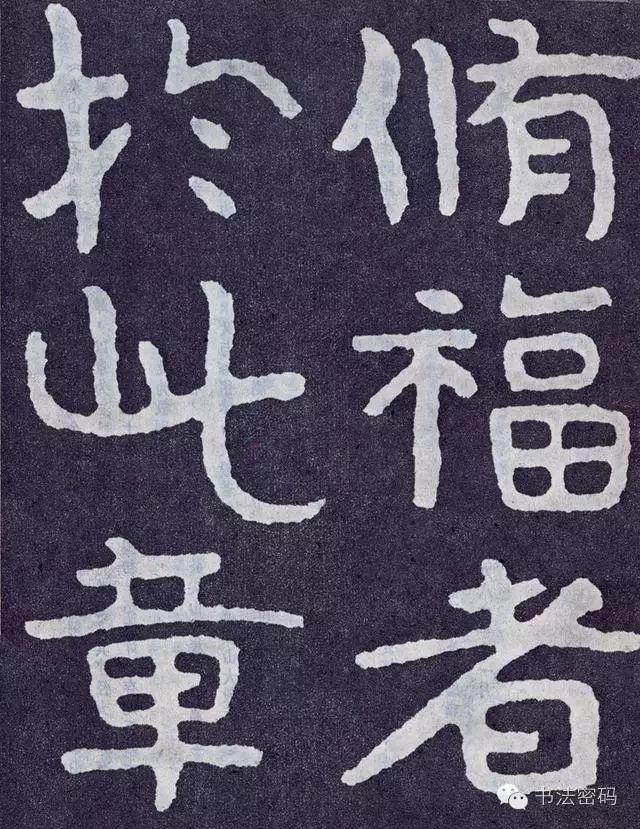 脩福者
於此章
书法密码